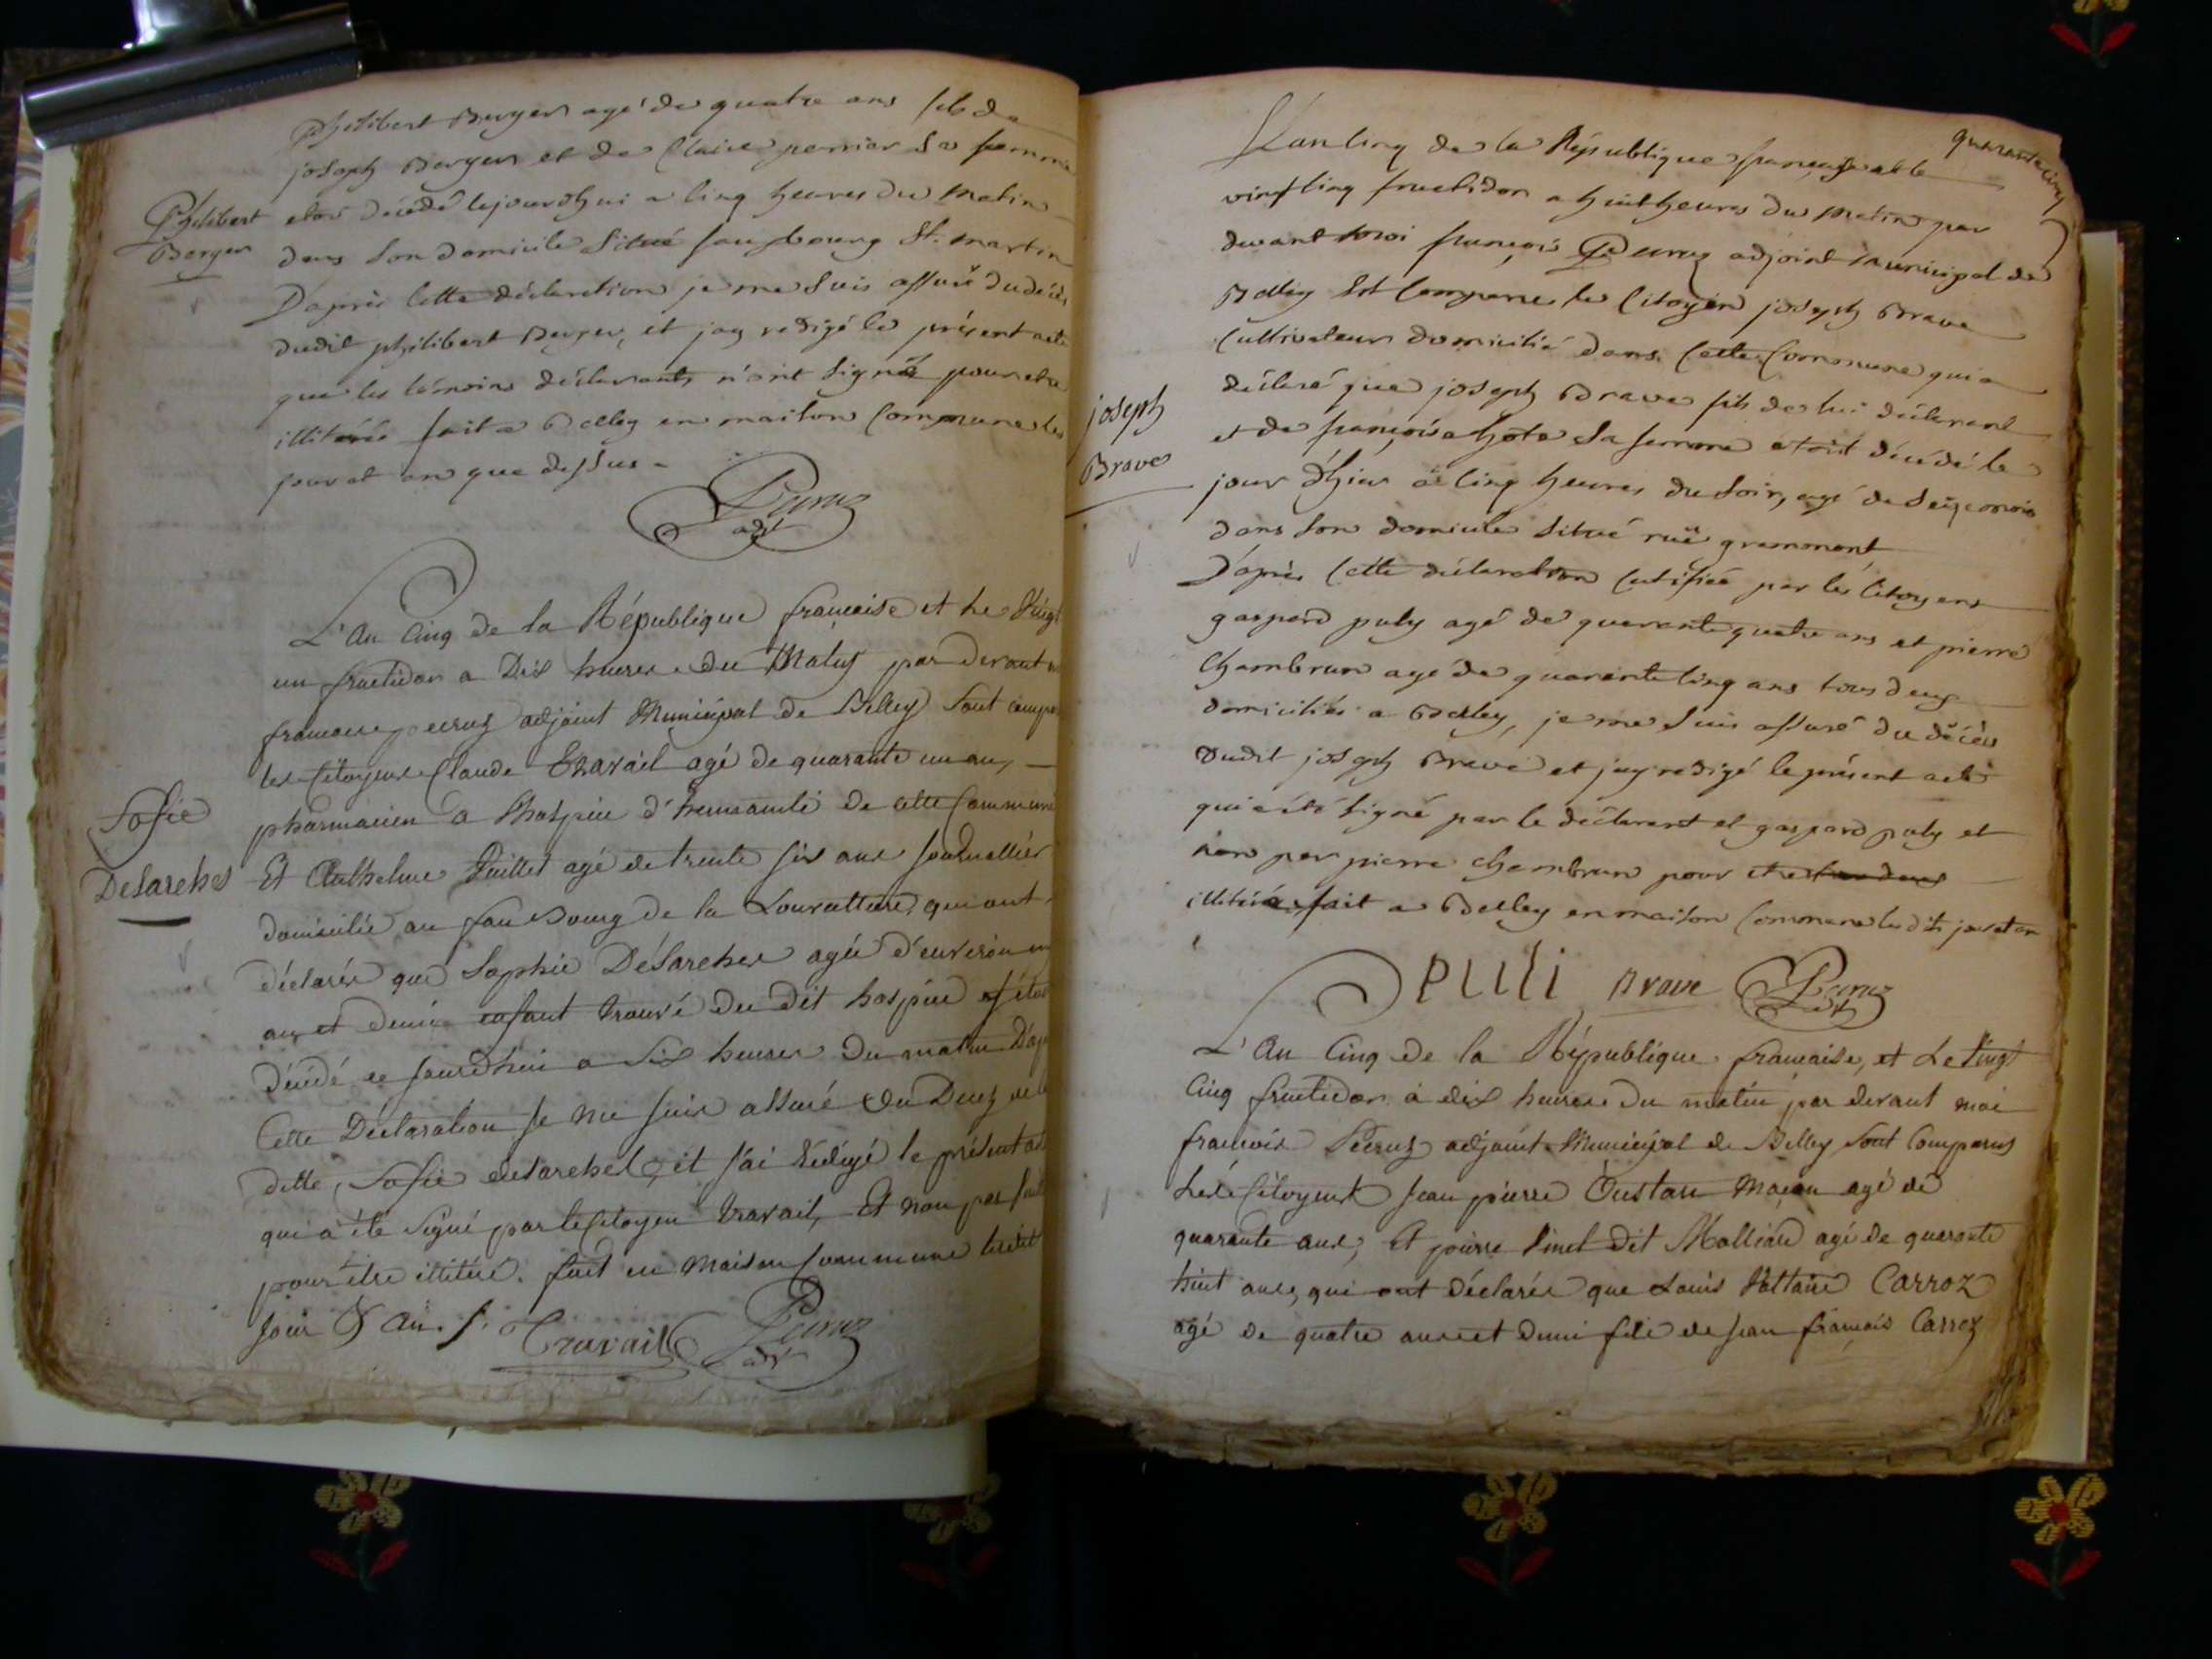 philibert Berger agé de quatre ans fils de
joseph Berger et de Claire perrier Sa femme
Philibert
Berger
etoit décédé cejourdhui a cinq heures du matin
dans son domicile Situé faux bourg St. martin
D'après cette déclaration je me suis assuré du décès
dudit philibert Berger, et jay redigé le présent acte
que les témoins déclarants n'ont signé pour etre
illitérés fait a Belley en maison Commune les
jour et an que dessus -
Peruz
adjt
L'an Cinq de la République française et le Vingt
un fructidor a Dix heures du Matin par devant
francois peruz adjoint Municipal de Belley Sont
les Citoyens Claude Travail agé de quarante un ans,
pharmacien a l'hospice d'humanité de cette Commune
Sofie
Desarches
Et Anthelme Juillet agé de trente six ans Journallier
domicilié au faux Bourg de la Louvattiere, qui ont
déclarés que Sophie Désarches agée d'environ un
an et demi enfant trouvé du dit hospice
décédé ce jourdhui a Six heures du matin
Cette Déclaration Je me suis assuré du Decez de la
ditte Sofie desarches, et J'ai rédigé le présent acte
qui a été signé par le Citoyen travail, Et non par
pour être illitéré. fait en Maison Commune
Jour & an. s.
Travail Peruz
adjt
quarante cinq
L'an cinq de la République française et le
vingt cinq fructidor a huit heures du matin par
devant moi françois Peruz adjoint municipal de
Belley est comparu le Citoyen joseph Brave
Cultivateur domicilié dans cette Commune qui a
joseph
Brave
déclaré que joseph Brave fils de lui déclarant
et de françoise hote sa femme etoit décédé le
jour d'hier a cinq heures du soir, agé de seize mois
dans son domicile situé ruë grammont
D'après cette déclaration certifiée par les citoyens
gaspard puly agé de quarante quatre ans et pierre
Chambrun agé de quarante cinq ans tous deux
domiciliés a Belley, je me suis assuré du décès
dudit joseph Brave et jay redigé le présent acte
qui a été signé par le déclarant et gaspard puly et
non par pierre chambrun pour etre
illitéré, fait a Belley en maison Commune les dits jour et an
PULI Brave Peruz
adjt
L'An Cinq de la République française, et Le Vingt
Cinq fructidor a dix heures du matin par devant moi
francois Peruz adjoint Municipal de Belley Sont Comparus
Les Citoyens Jean pierre Oustare Maçon agé de
quarante ans, Et pierre Pinel dit Malliare agé de quarante
huit ans, qui ont déclarés que Louis Vottaire Carroz
agé de quatre ans et demi fils de Jean francois Carroz